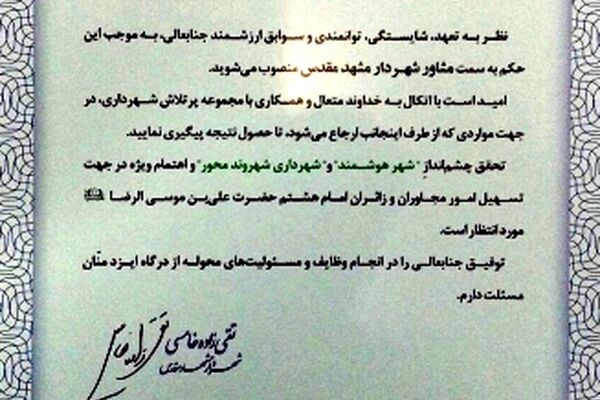 نظر به تعهد، شایستگی، توانمندی و سوابق ارزشمند جنابعالی، به موجب این
حکم به سمت مشاور شهردار مشهد مقدس منصوب می‌شوید.
امید است با اتکال به خداوند متعال و همکاری با مجموعه پرتلاش شهرداری، در
جهت مواردی که از طرف اینجانب ارجاع می‌شود، تا حصول نتیجه پیگیری نمایید.
تحقق چشم‌انداز "شهر هوشمند" و "شهرداری شهروند محور" و اهتمام ویژه در جهت
تسهیل امور مجاوران و زائران امام هشتم حضرت علی‌بن موسی الرضا
مورد انتظار است.
توفیق جنابعالی را در انجام وظایف و مسئولیت‌های محوله از درگاه ایزد منّان
مسئلت دارم.
تقی زاده خامسی
شهردار مشهد مقدس